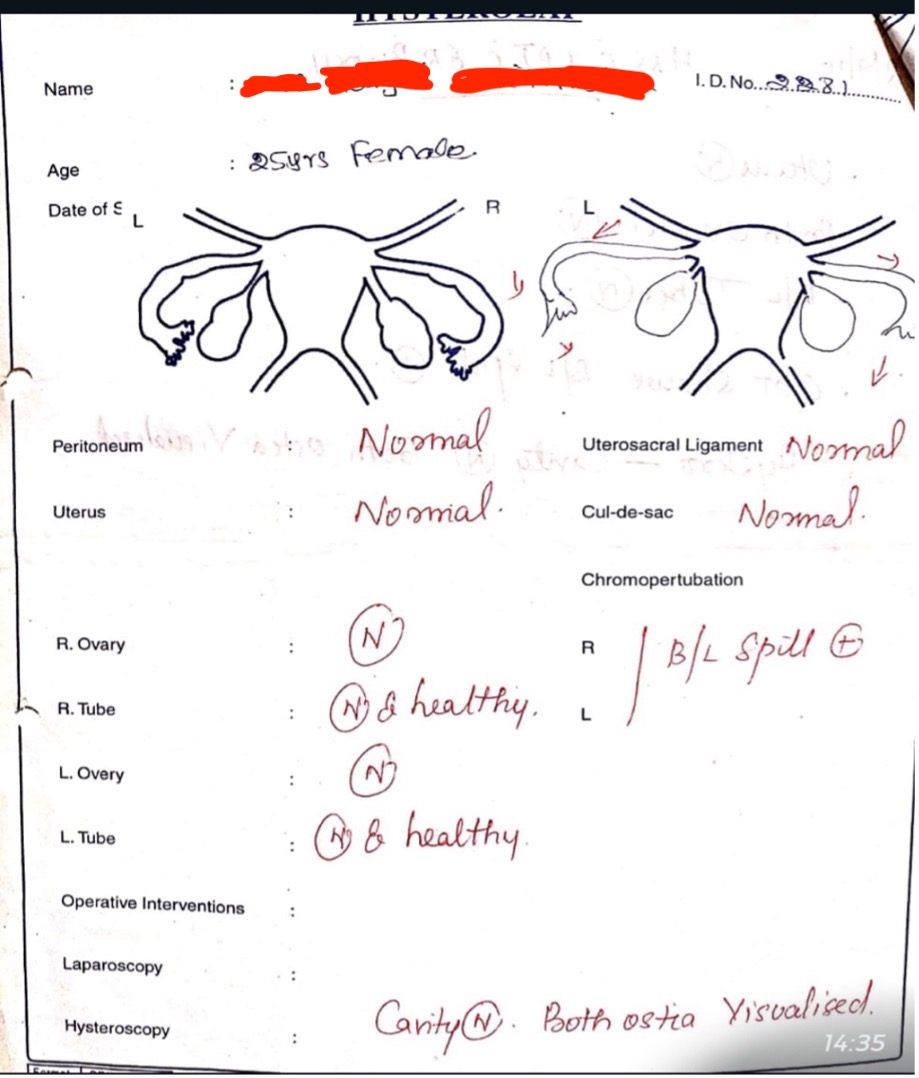 HYSTEROLAP
Name :
I.D.No. 9881
Age : 25yrs Female.
Date of S
L R L
Peritoneum : Normal
Uterosacral Ligament Normal
Uterus : Normal.
Cul-de-sac Normal.
Chromopertubation
R. Ovary : (N)
R B/L Spill (+)
R. Tube : (N) & healthy.
L
L. Overy : (N)
L. Tube : (N) & healthy.
Operative Interventions :
Laparoscopy :
Hysteroscopy : Cavity (N). Both ostia Visualised.
14:35